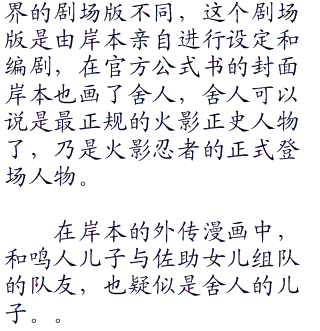 界的剧场版不同，这个剧场
版是由岸本亲自进行设定和
编剧，在官方公式书的封面
岸本也画了舍人，舍人可以
说是最正规的火影正史人物
了，乃是火影忍者的正式登
场人物。
在岸本的外传漫画中，
和鸣人儿子与佐助女儿组队
的队友，也疑似是舍人的儿
子。。